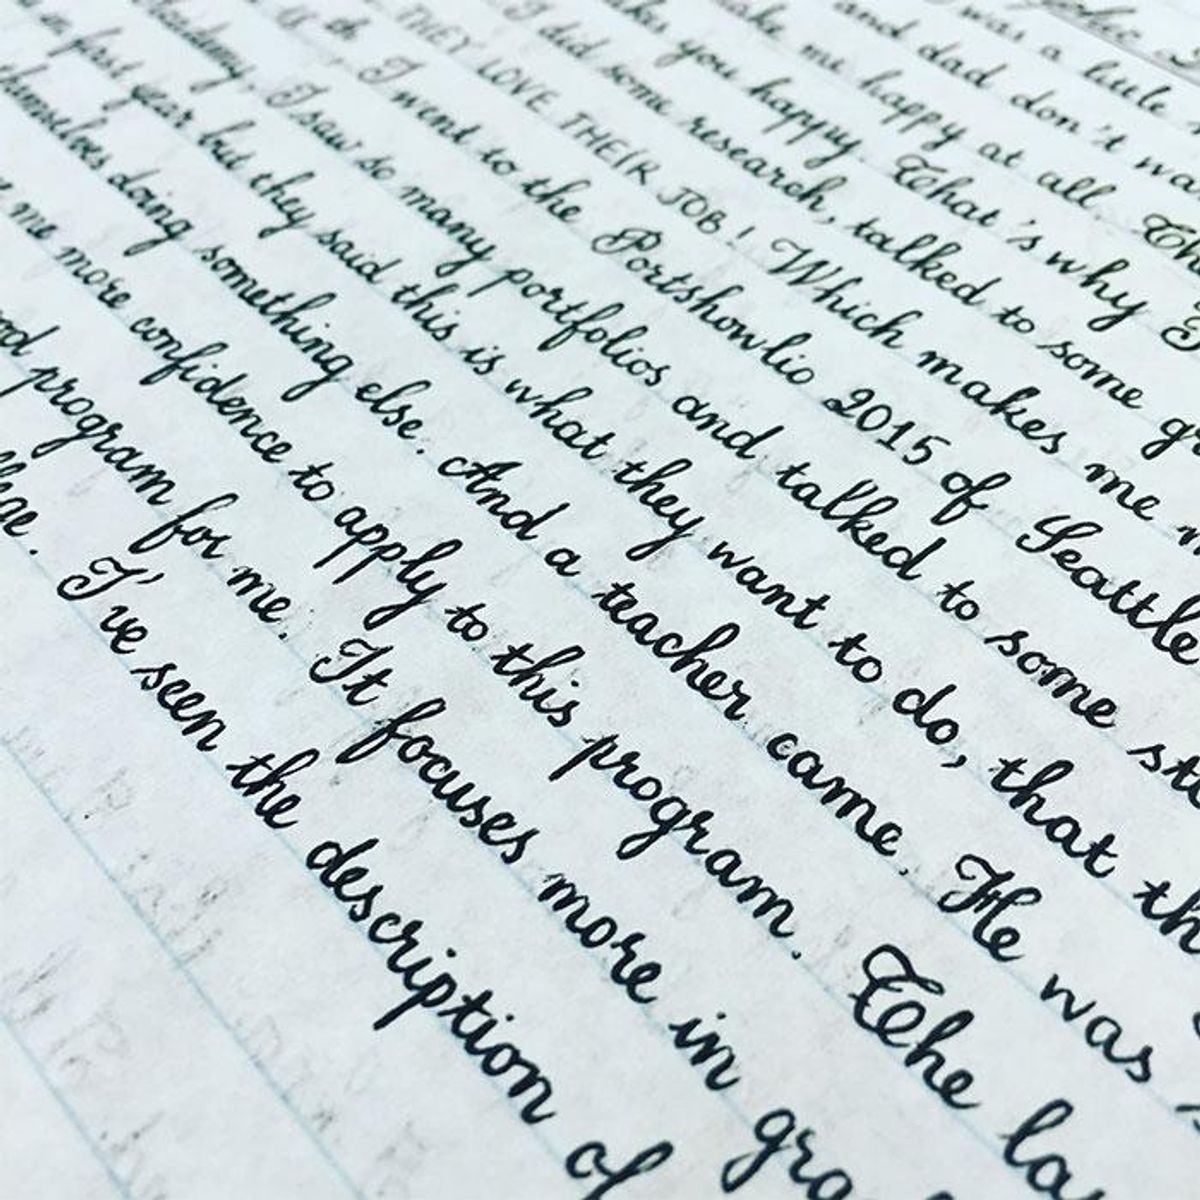 was a little
and dad don't wa
make me happy at all. Th
you happy. That's why I
I did some research, talked to some gr
THEY LOVE THEIR JOB! Which makes me
I went to the Portshowlio 2015 of Seattle
Academy, I saw so many portfolios and talked to some st
in first year but they said this is what they want to do, that th
themselves doing something else. And a teacher came. He was
me more confidence to apply to this program. The la
program for me. It focuses more in gra
I've seen the description of